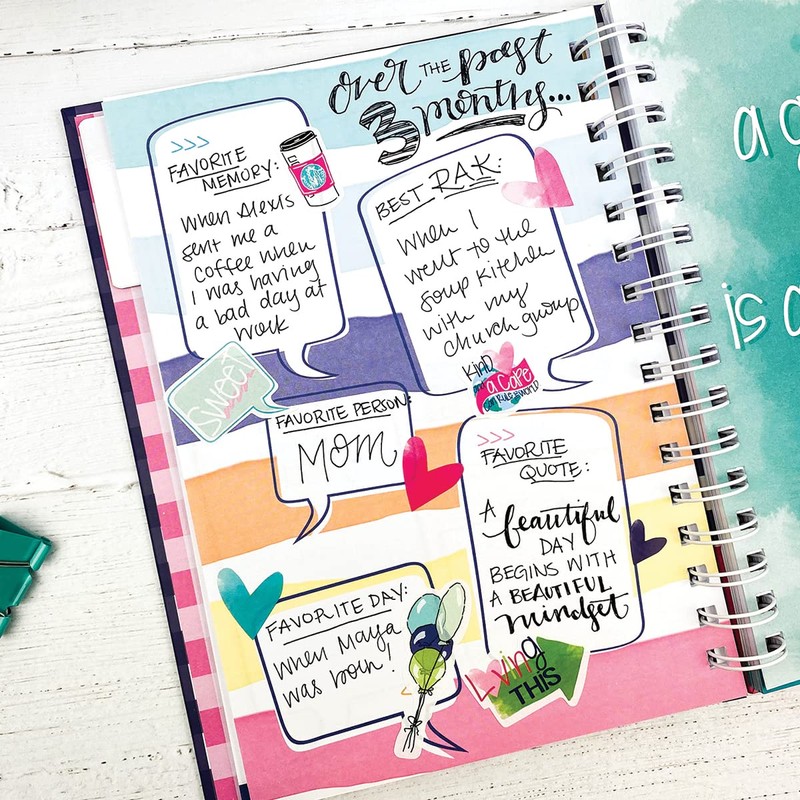 over THE past
3 months...
FAVORITE
MEMORY:
When Alexis
sent me a
coffee when
I was having
a bad day at
work
BEST RAK:
When I
went to the
soup kitchen
with my
church group
sweet
KIND
a CAPE
can RULE the WORLD
FAVORITE PERSON:
MOM
FAVORITE
QUOTE:
A beautiful
DAY
BEGINS WITH
A BEAUTIFUL
mindset
FAVORITE DAY:
When Maya
was born!
Loving
THIS
a g
is a